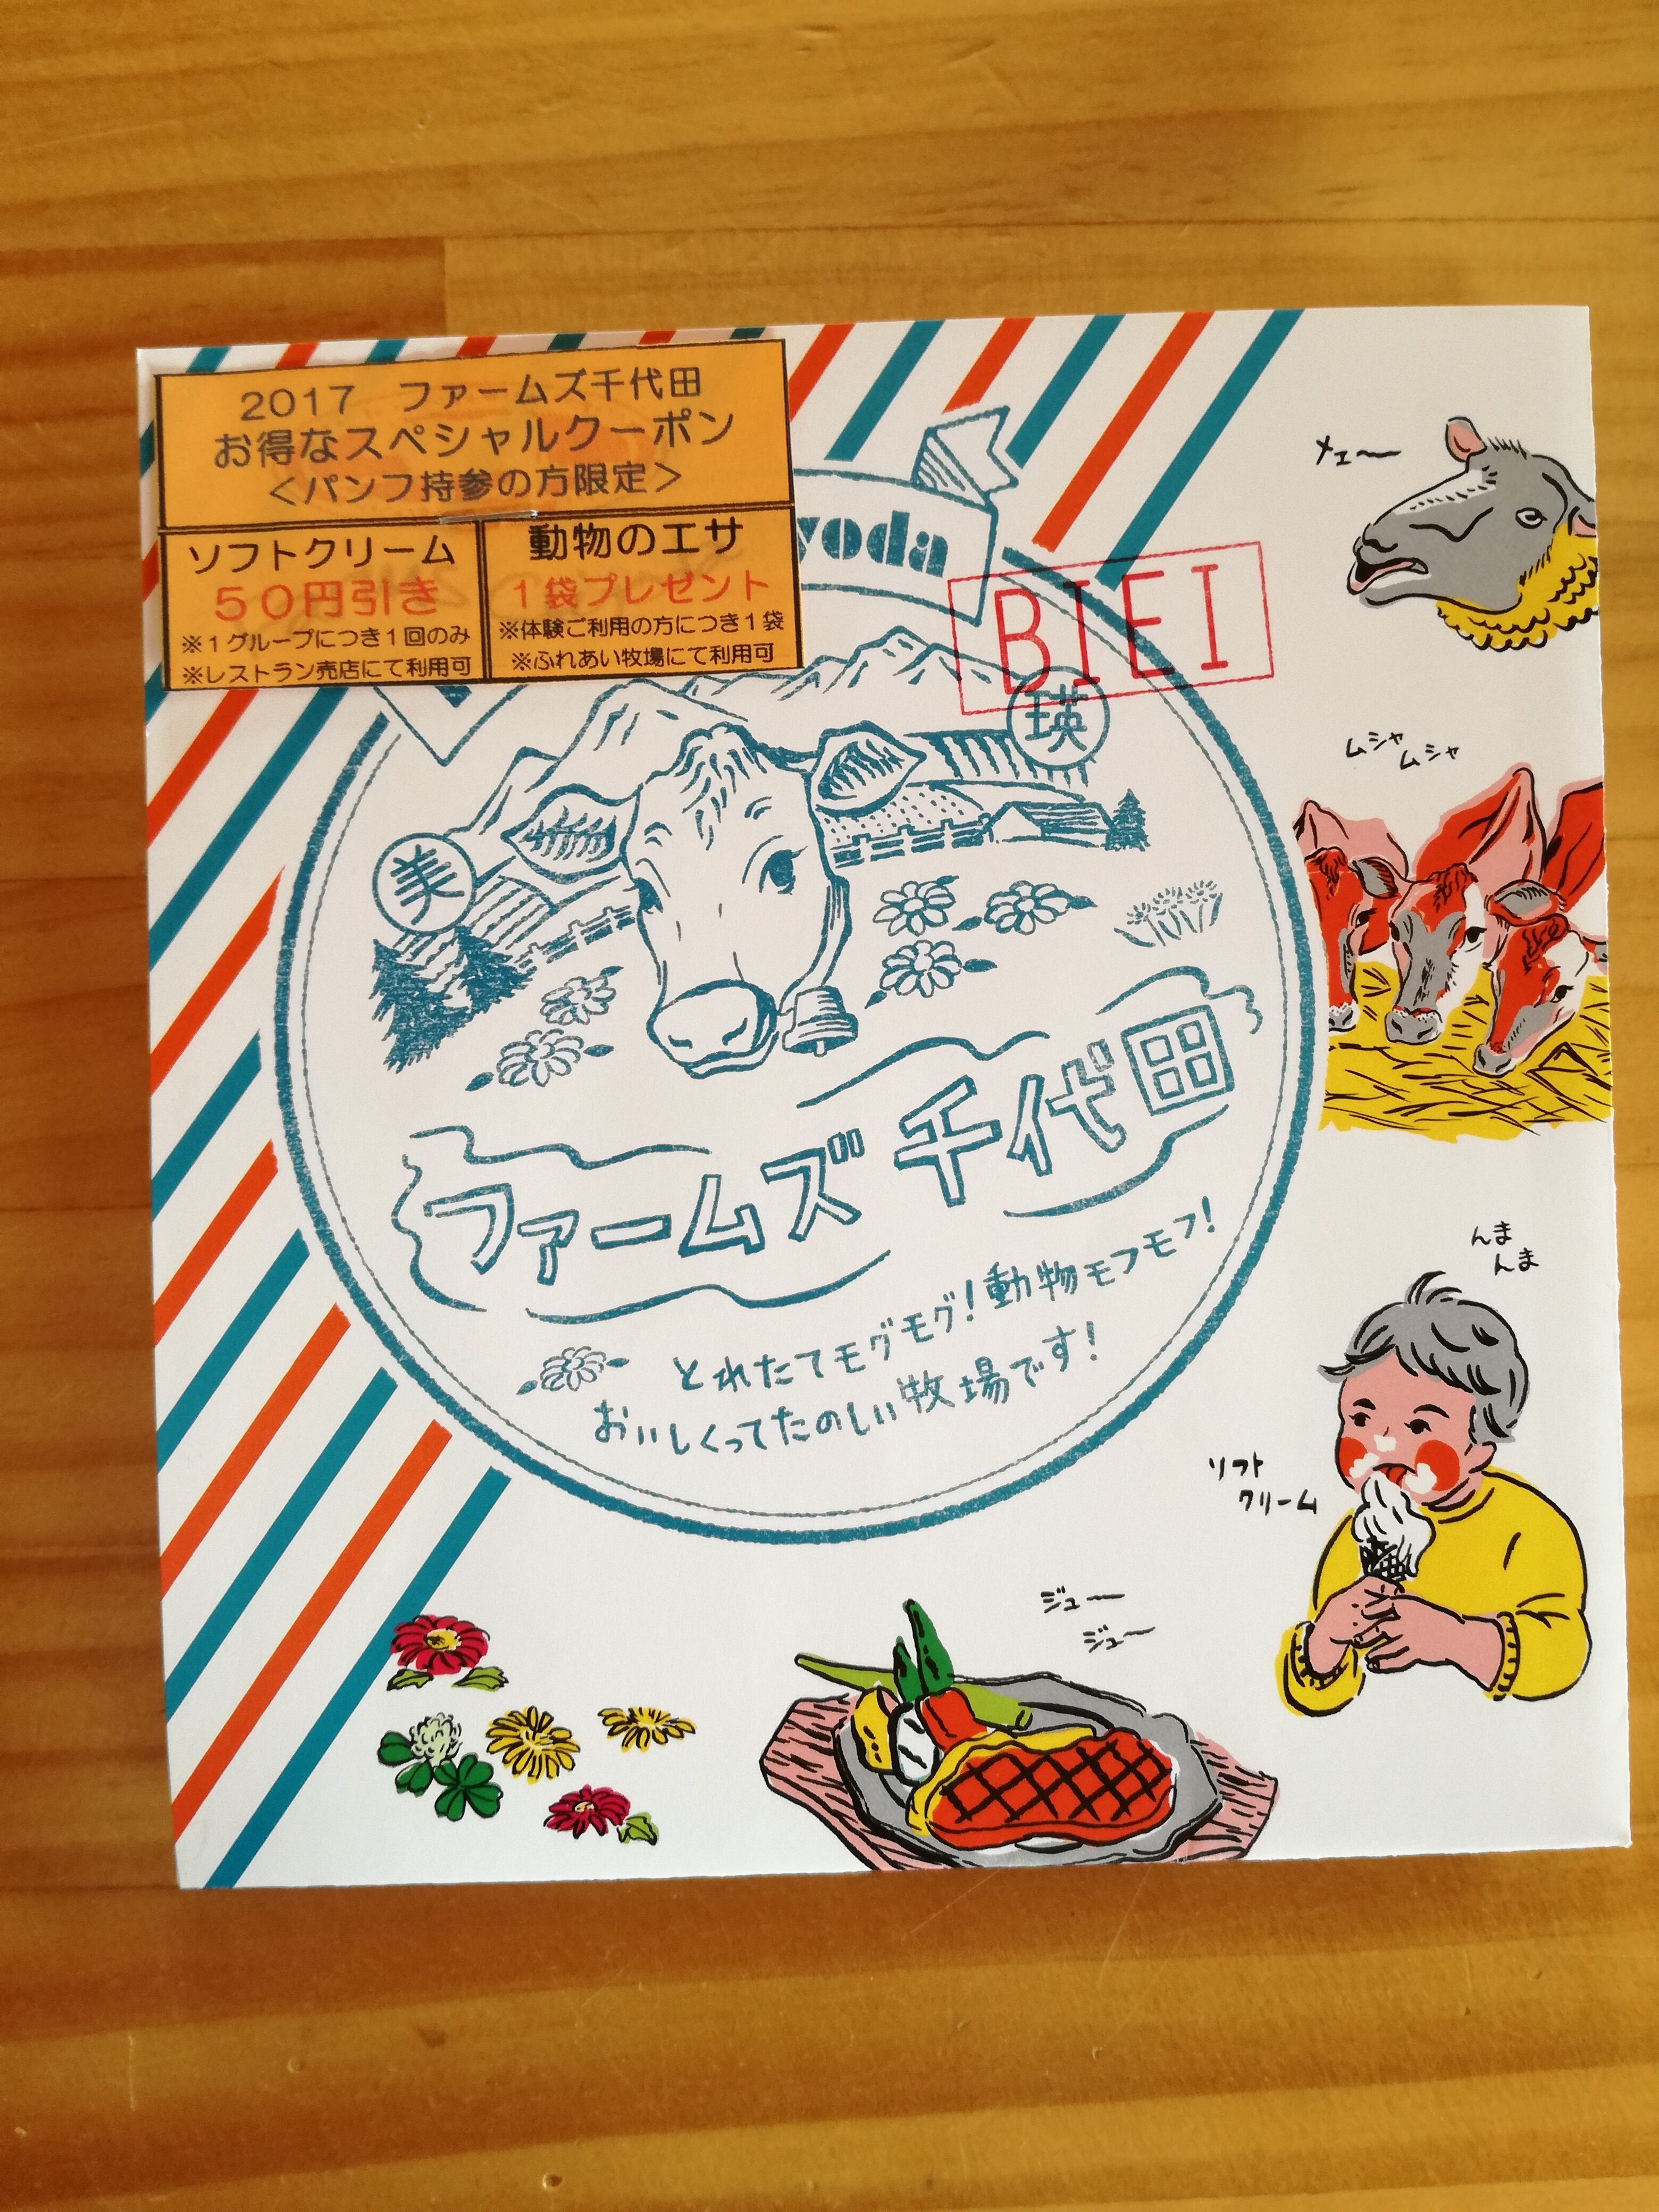 2017 ファームズ千代田
お得なスペシャルクーポン
<パンフ持参の方限定>
ソフトクリーム
50円引き
※1グループにつき1回のみ
※レストラン売店にて利用可
動物のエサ
1袋プレゼント
※体験ご利用の方につき1袋
※ふれあい牧場にて利用可
yoda
BIEI
瑛
美
ファームズ 千代田
とれたてモグモグ!動物モフモフ!
おいしくってたのしい牧場です!
メェ〜
ムシャ
ムシャ
んま
んま
ソフト
クリーム
ジュー
ジュー